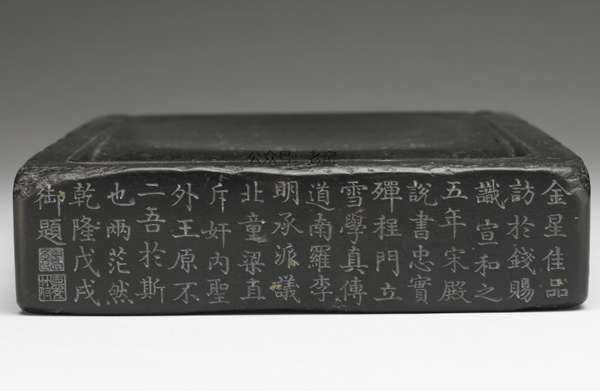 金星佳品
訪於錢賜
識宣和之
五年宋殿
說書忠實
殫程門立
雪學真傳
道南羅李
明承派議
北童梁直
斥奸內聖
外王原不
二吾於斯
也兩茫然
乾隆戊戌
御題
公众号